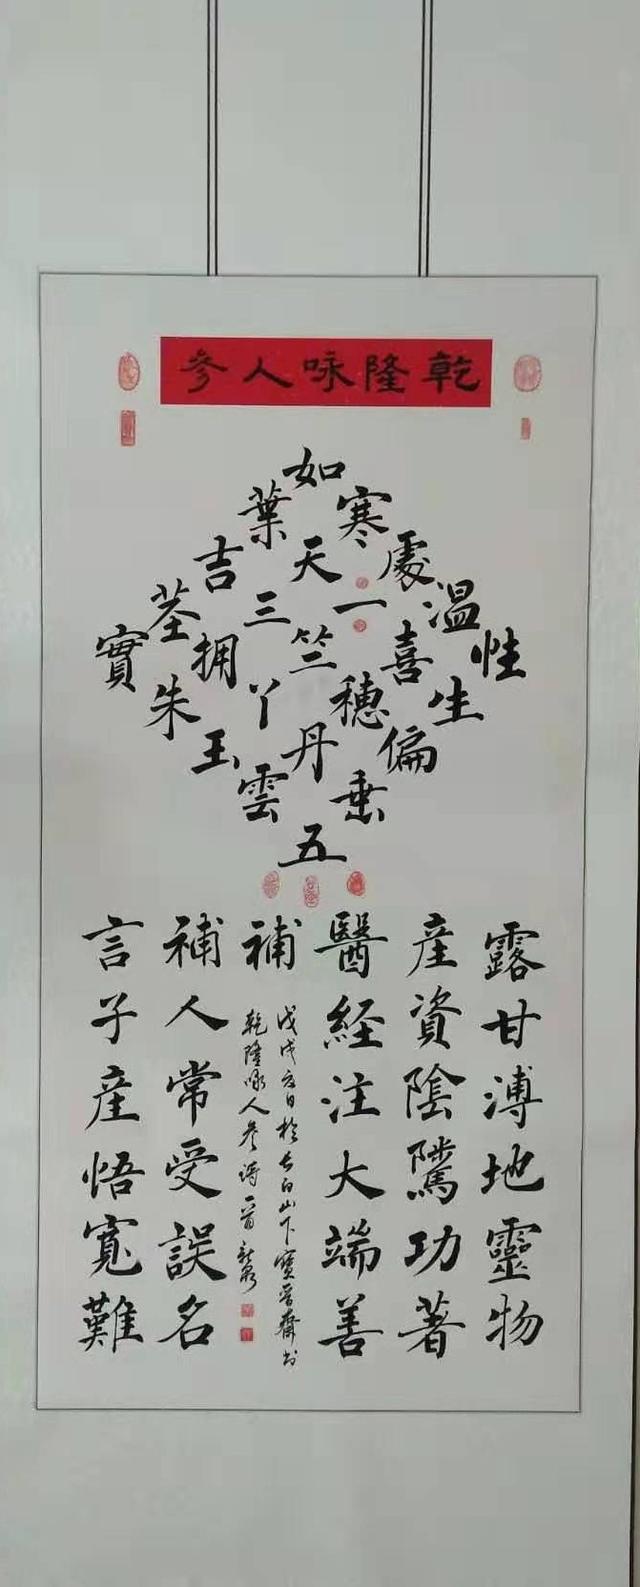 乾隆咏人參
性
温生
處喜偏
寒一穗垂
如天竺丹五
葉三丫雲
吉拥玉
茎朱
實
露甘溥地靈物
産資陰騭功著
醫経注大端善
補
戊戌夏日於长白山下寶晉齋书
乾隆咏人参诗一首
補人常受誤名
言子産悟寬難